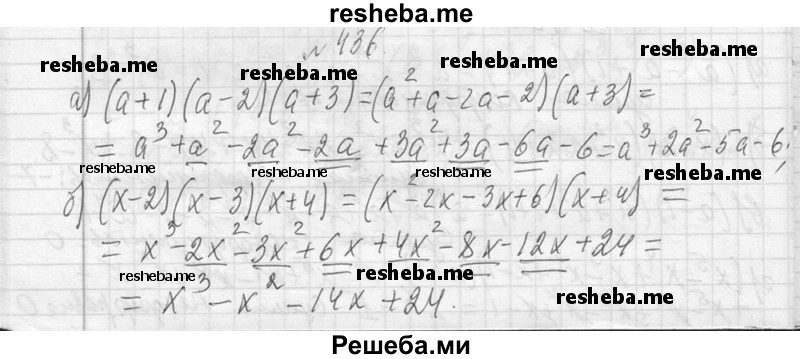 resheba.me
№ 436.
resheba.me resheba.me resheba.me
а) (a+1)(a-2)(a+3)=(a²+a-2a-2)(a+3)=
= a³+a²-2a²-2a+3a²+3a-6a-6=a³+2a²-5a-6;
resheba.me resheba.me resheba.me
б) (x-2)(x-3)(x+4) = (x²-2x-3x+6)(x+4) =
= x³-2x²-3x²+6x+4x²-8x-12x+24=
resheba.me resheba.me resheba.me
= x³-x²-14x+24.
Решеба.ми